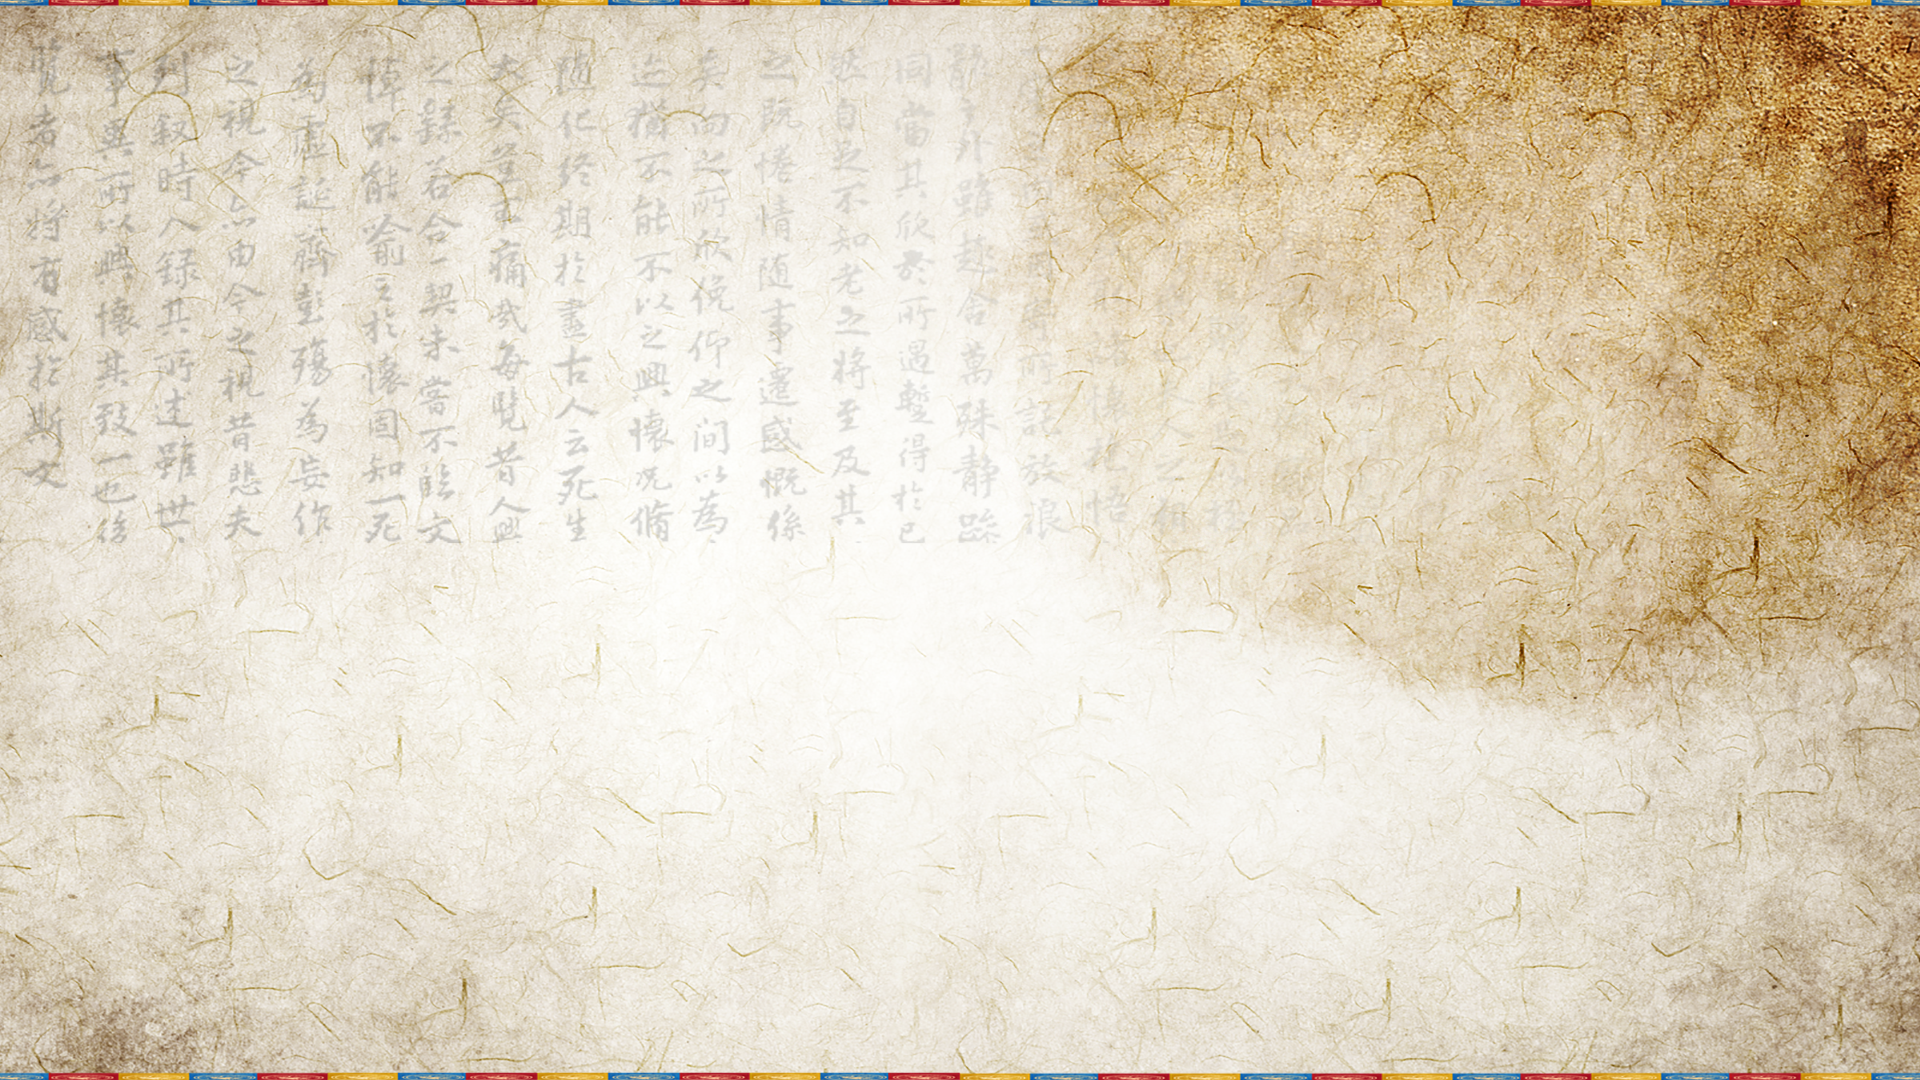 人之相
諸懷抱悟
寄所託放浪
骸之外雖趣舍萬殊静躁
同當其欣於所遇蹔得於己
然自足不知老之將至及其
之既惓情随事遷感慨係
矣向之所欣俛仰之間以為
迹猶不能不以之興懷况脩
随化終期於盡古人云死生
大矣豈不痛哉每覽昔人興
之録若合一契未嘗不臨文
悼不能喻之於懷固知一死
為虚誕齊彭殤為妄作
之視今亦由今之視昔悲夫
列叙時人録其所述雖世
事異所以興懷其致一也後
覽者亦將有感於斯文